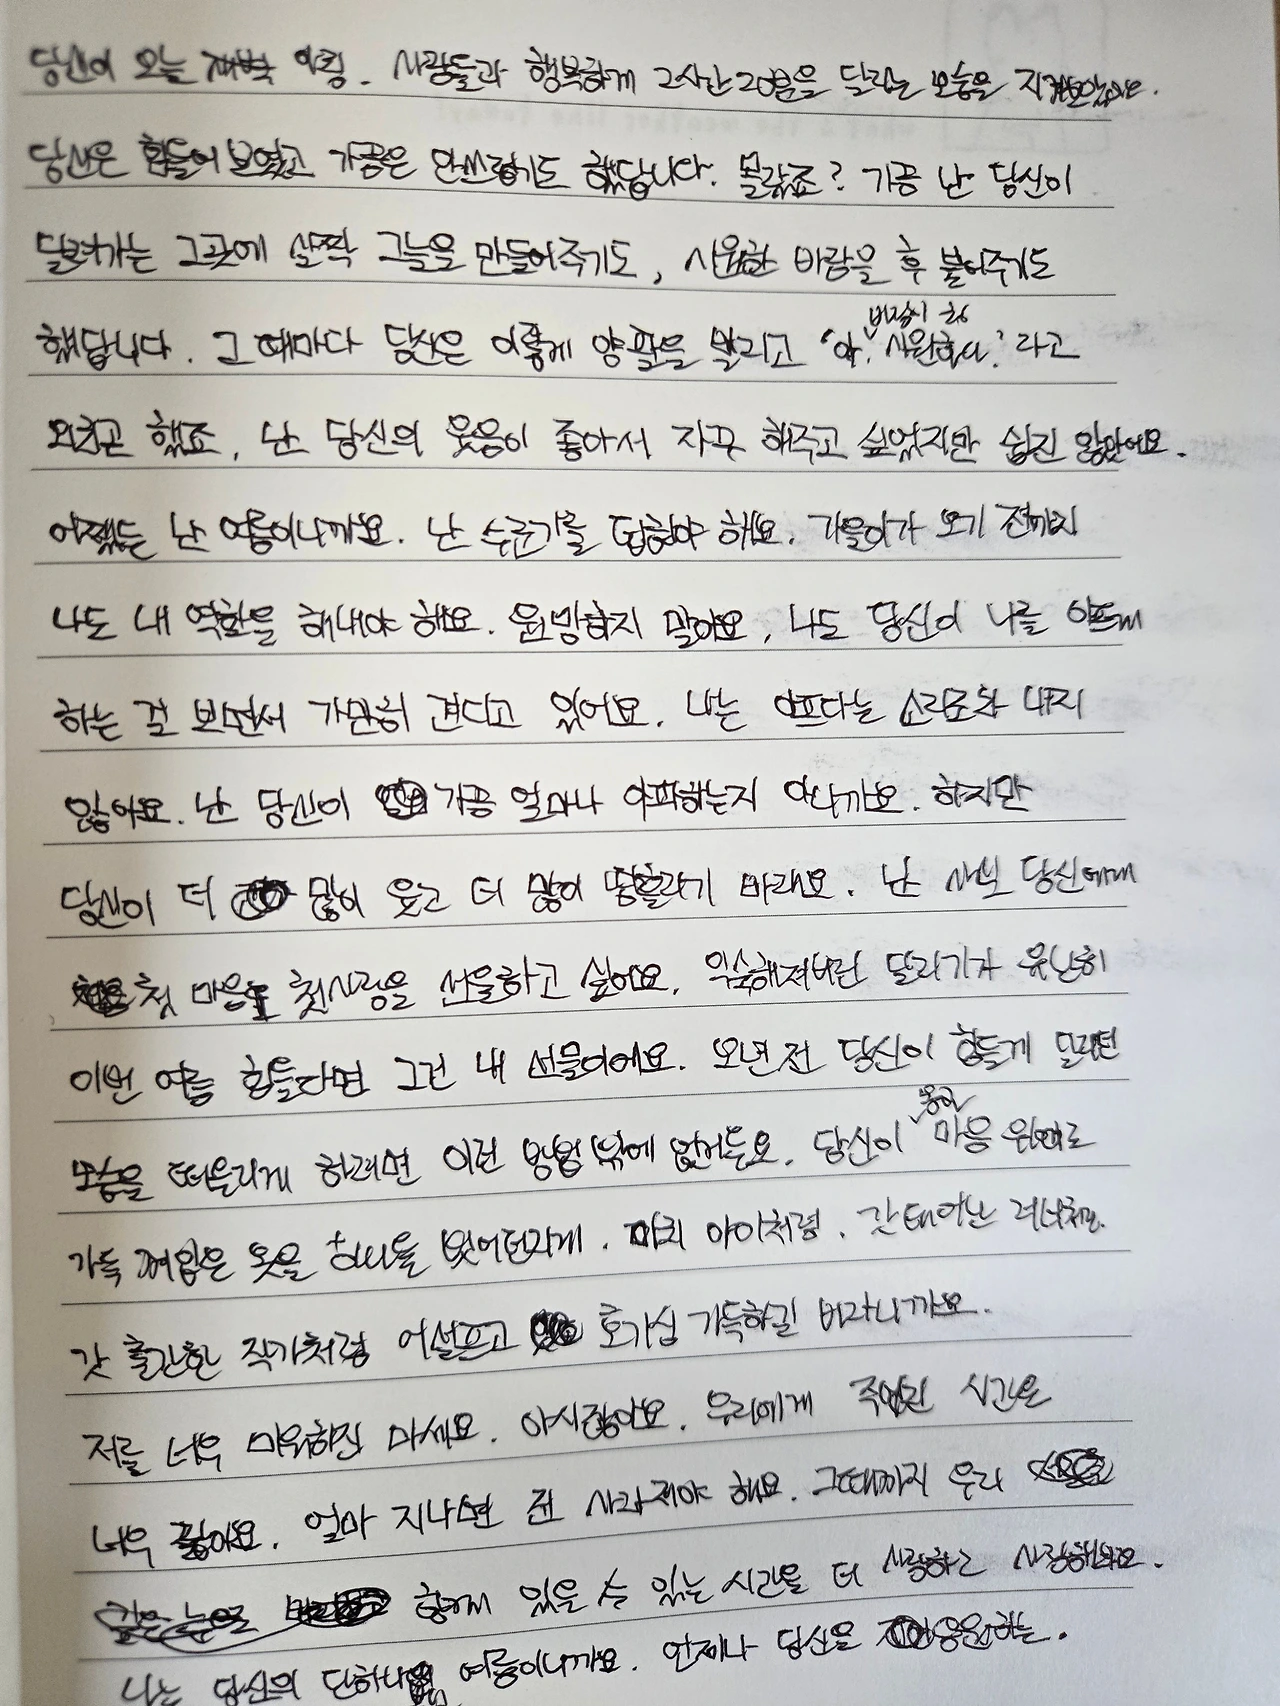 당신이 오늘 새벽 아침. 사람들과 행복하게 2시간 20분을 달리는 모습을 지켜보았어요.
당신은 힘들어 보였고 가끔은 안쓰럽기도 했답니다. 몰랐죠? 가끔 난 당신이
달려가는 그곳에 살짝 그늘을 만들어주기도, 시원한 바람을 후 불어주기도
했답니다. 그 때마다 당신은 이렇게 양팔을 벌리고 '아, 시원하다.' 라고
외치곤 했죠. 난 당신의 웃음이 좋아서 자꾸 해주고 싶었지만 쉽진 않았어요.
어쨌든 난 여름이니까요. 난 수군가를 덥혀야 해요. 가을이가 오기 전까지
나도 내 역할을 해내야 해요. 원망하지 말아요, 나도 당신이 나를 아프게
하는 걸 보면서 가만히 견디고 있어요. 나는 아프다는 소리조차 내지
않아요. 난 당신이 가끔 얼마나 아파하는지 아니까요. 하지만
당신이 더 많이 웃고 더 많이 행복하기 바래요. 난 사실 당신에게
첫 마음 첫사랑을 선물하고 싶어요. 익숙해져버린 달리기가 유난히
이번 여름 힘들다면 그건 내 선물이에요. 오년 전 당신이 힘들게 달리던
모습을 떠올리게 하려면 이런 방법 밖에 없거든요. 당신이 마음 위에로
가득 껴입은 옷을 하나둘 벗어던지게. 마치 아이처럼. 갓 태어난 러너처럼.
갓 출간한 작가처럼 어설프고 호기심 가득하길 바라니까요.
저를 너무 미워하진 마세요. 아시잖아요. 우리에게 주어진 시간은
너무 짧아요. 얼마 지나면 전 사라져야 해요. 그때까지 우리
함께 있을 수 있는 시간을 더 사랑하고 사랑해봐요.
나는 당신의 단하나의 여름이니까요. 언제나 당신을 응원하는.